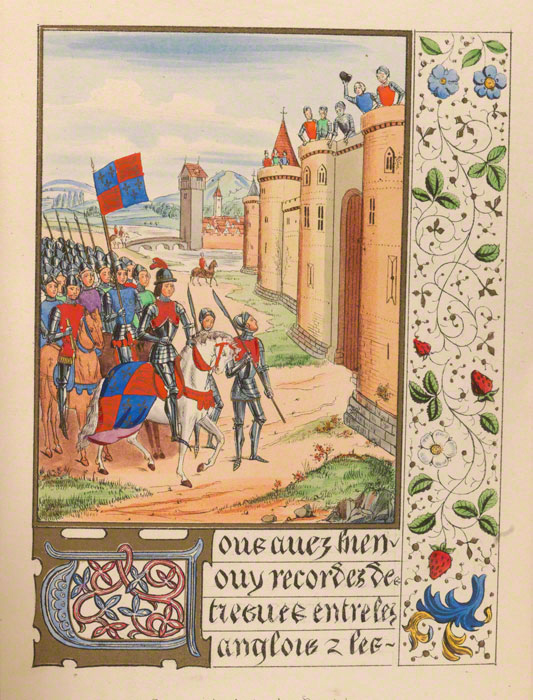 Vous auez bien
ouy recordez de
entre les
anglois z les-